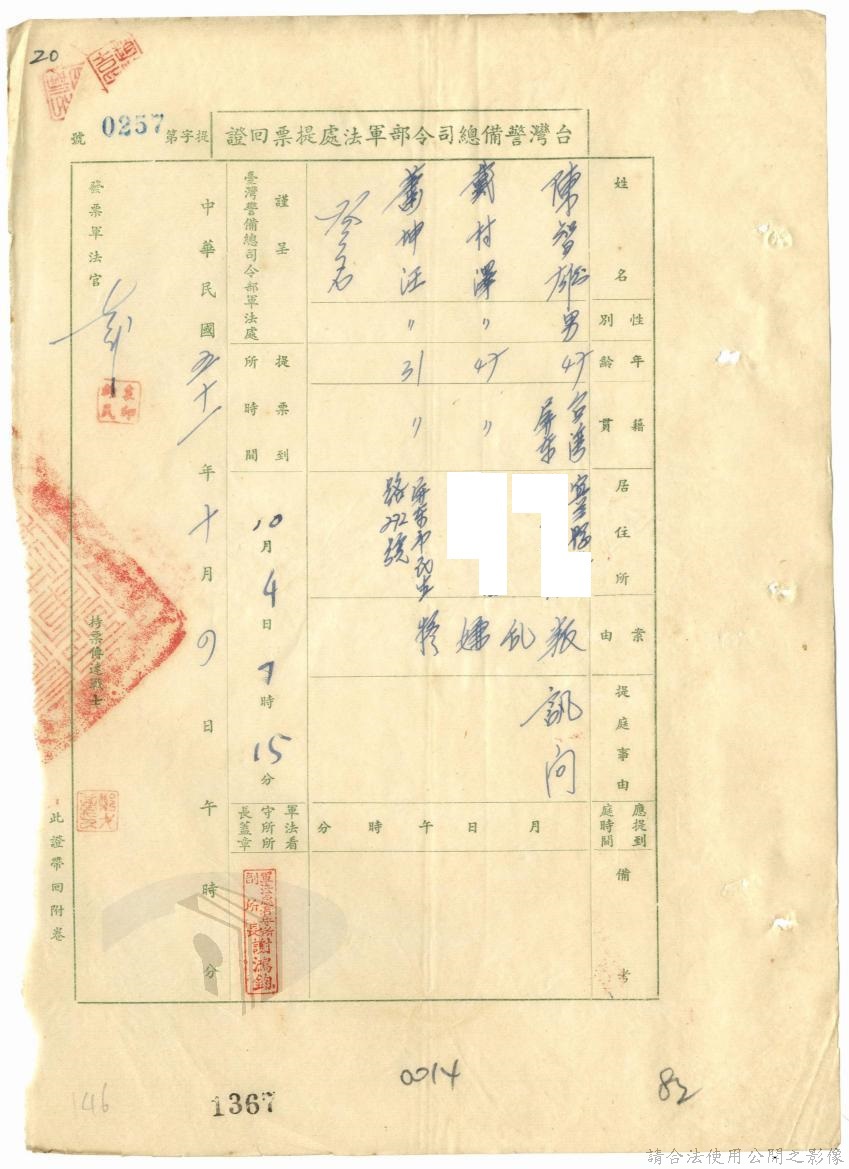 20
台灣警備總司令部軍法處提票回證
提字第0257號
姓名
性別
年齡
籍貫
居住所
案由
提庭事由
應提到庭時間
備考
陳智雄 男 45 台灣屏東
戴村澤 〃 45 〃
蕭坤汪 〃 31 〃 屏東市民生路292號
叛乱嫌疑
訊问
月 日 午 時 分
謹呈
臺灣警備總司令部軍法處
提票到所時間
10月4日7時15分
軍法看守所所長蓋章
副所長謝鴻鈞
中華民國五十一年十月 日午 時 分
發票軍法官
持票傳達戰士
此證帶回附卷
146
1367
0014
82
請合法使用公開之影像